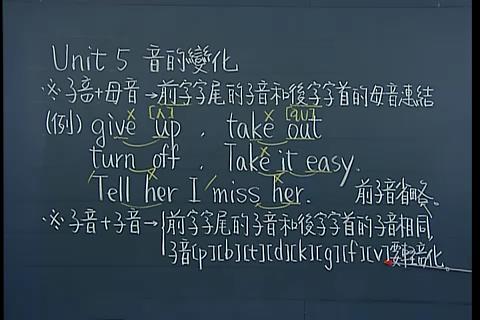 Unit 5 音的變化
※子音+母音→前字字尾的子音和後字字首的母音連結
(例) give up , take out
[ʌ] [aʊ]
turn off , Take it easy.
Tell her I miss her. 前子音省略、
※子音+子音→前字字尾的子音和後字字首的子音相同
子音[p][b][t][d][k][g][f][v]要輕音化。